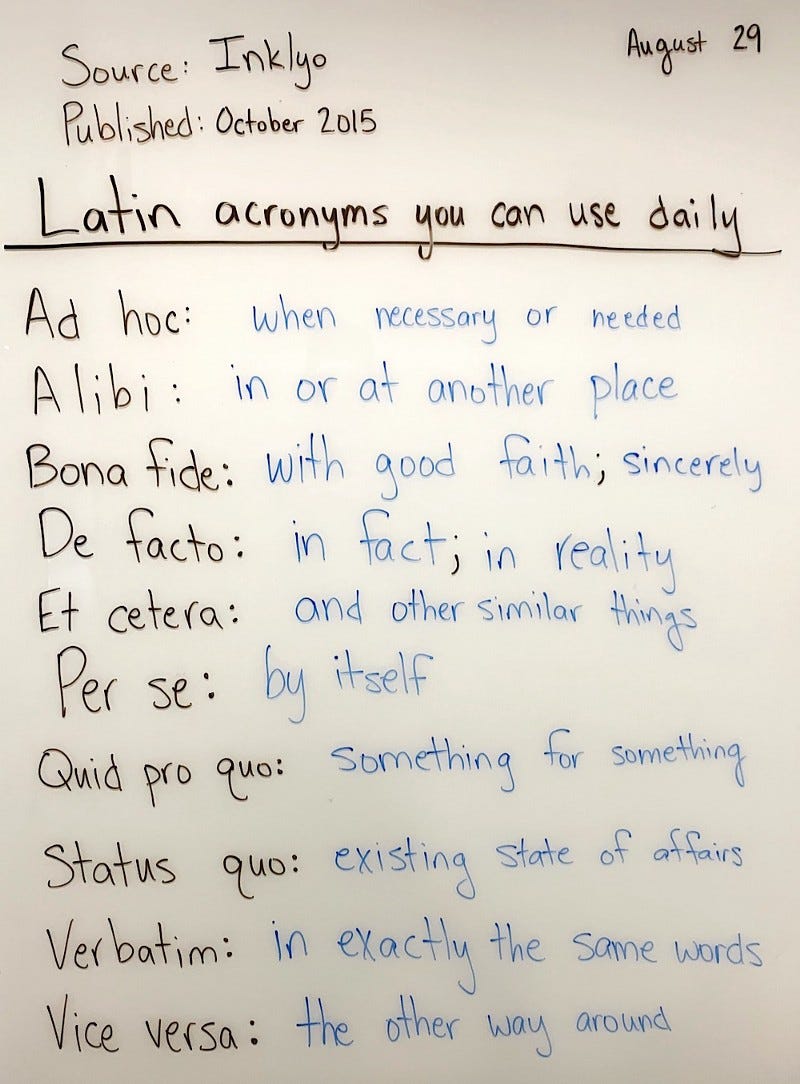 Source: Inklyo
August 29
Published: October 2015
Latin acronyms you can use daily
Ad hoc: when necessary or needed
Alibi: in or at another place
Bona fide: with good faith; sincerely
De facto: in fact; in reality
Et cetera: and other similar things
Per se: by itself
Quid pro quo: something for something
Status quo: existing state of affairs
Verbatim: in exactly the same words
Vice versa: the other way around